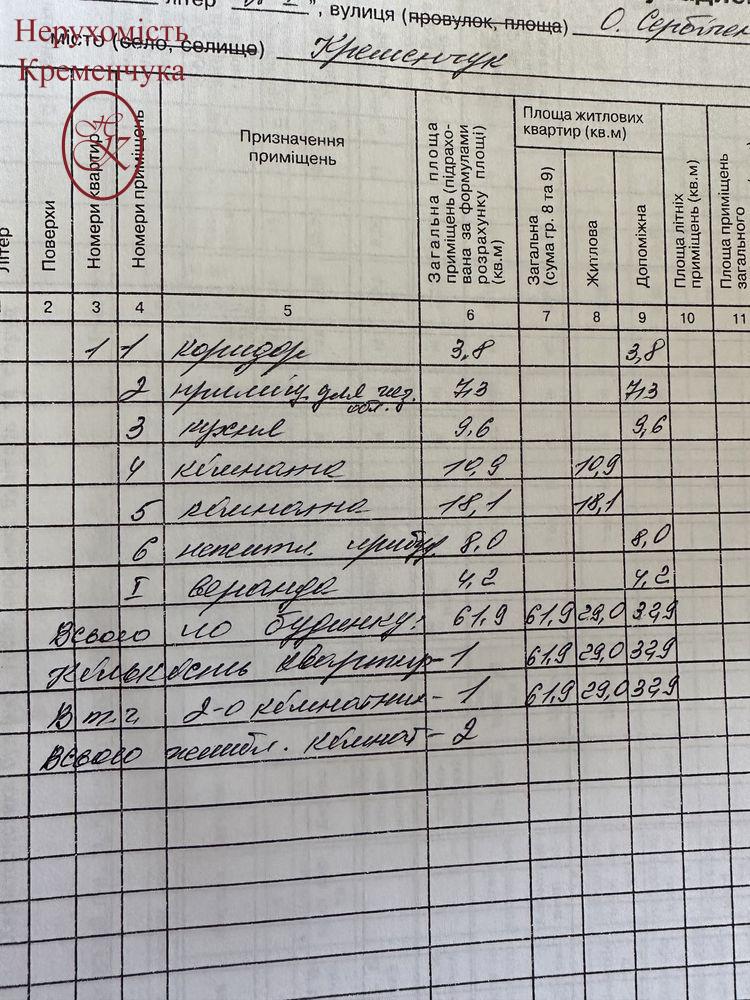 літер
", вулиця (провулок, площа) О. Сербічен
Нерухомість
Кременчука
місто (село, селище) Кременчук
літер
Поверхи
Номери квартир
Номери приміщень
Призначення
приміщень
Загальна площа
приміщень (підрахо-
вана за формулами
розрахунку площі)
(кв.м)
Площа житлових
квартир (кв.м)
Загальна
(сума гр. 8 та 9)
Житлова
Допоміжна
Площа літніх
приміщень (кв.м)
Площа приміщень
загального
2 3 4 5 6 7 8 9 10 11
1 1 коридор 3,8 3,8
2 приміщ. для інд. 7,3 7,3
оп.
3 кухня 9,6 9,6
4 кімната 10,9 10,9
5 кімната 18,1 18,1
6 нежитл. прибуд 8,0 8,0
I веранда 4,2 4,2
Всього по будинку: 61,9 61,9 29,0 32,9
Кількість квартир - 1 61,9 29,0 32,9
В т.ч. 2-о кімнатних - 1 61,9 29,0 32,9
Всього житл. кімнат - 2